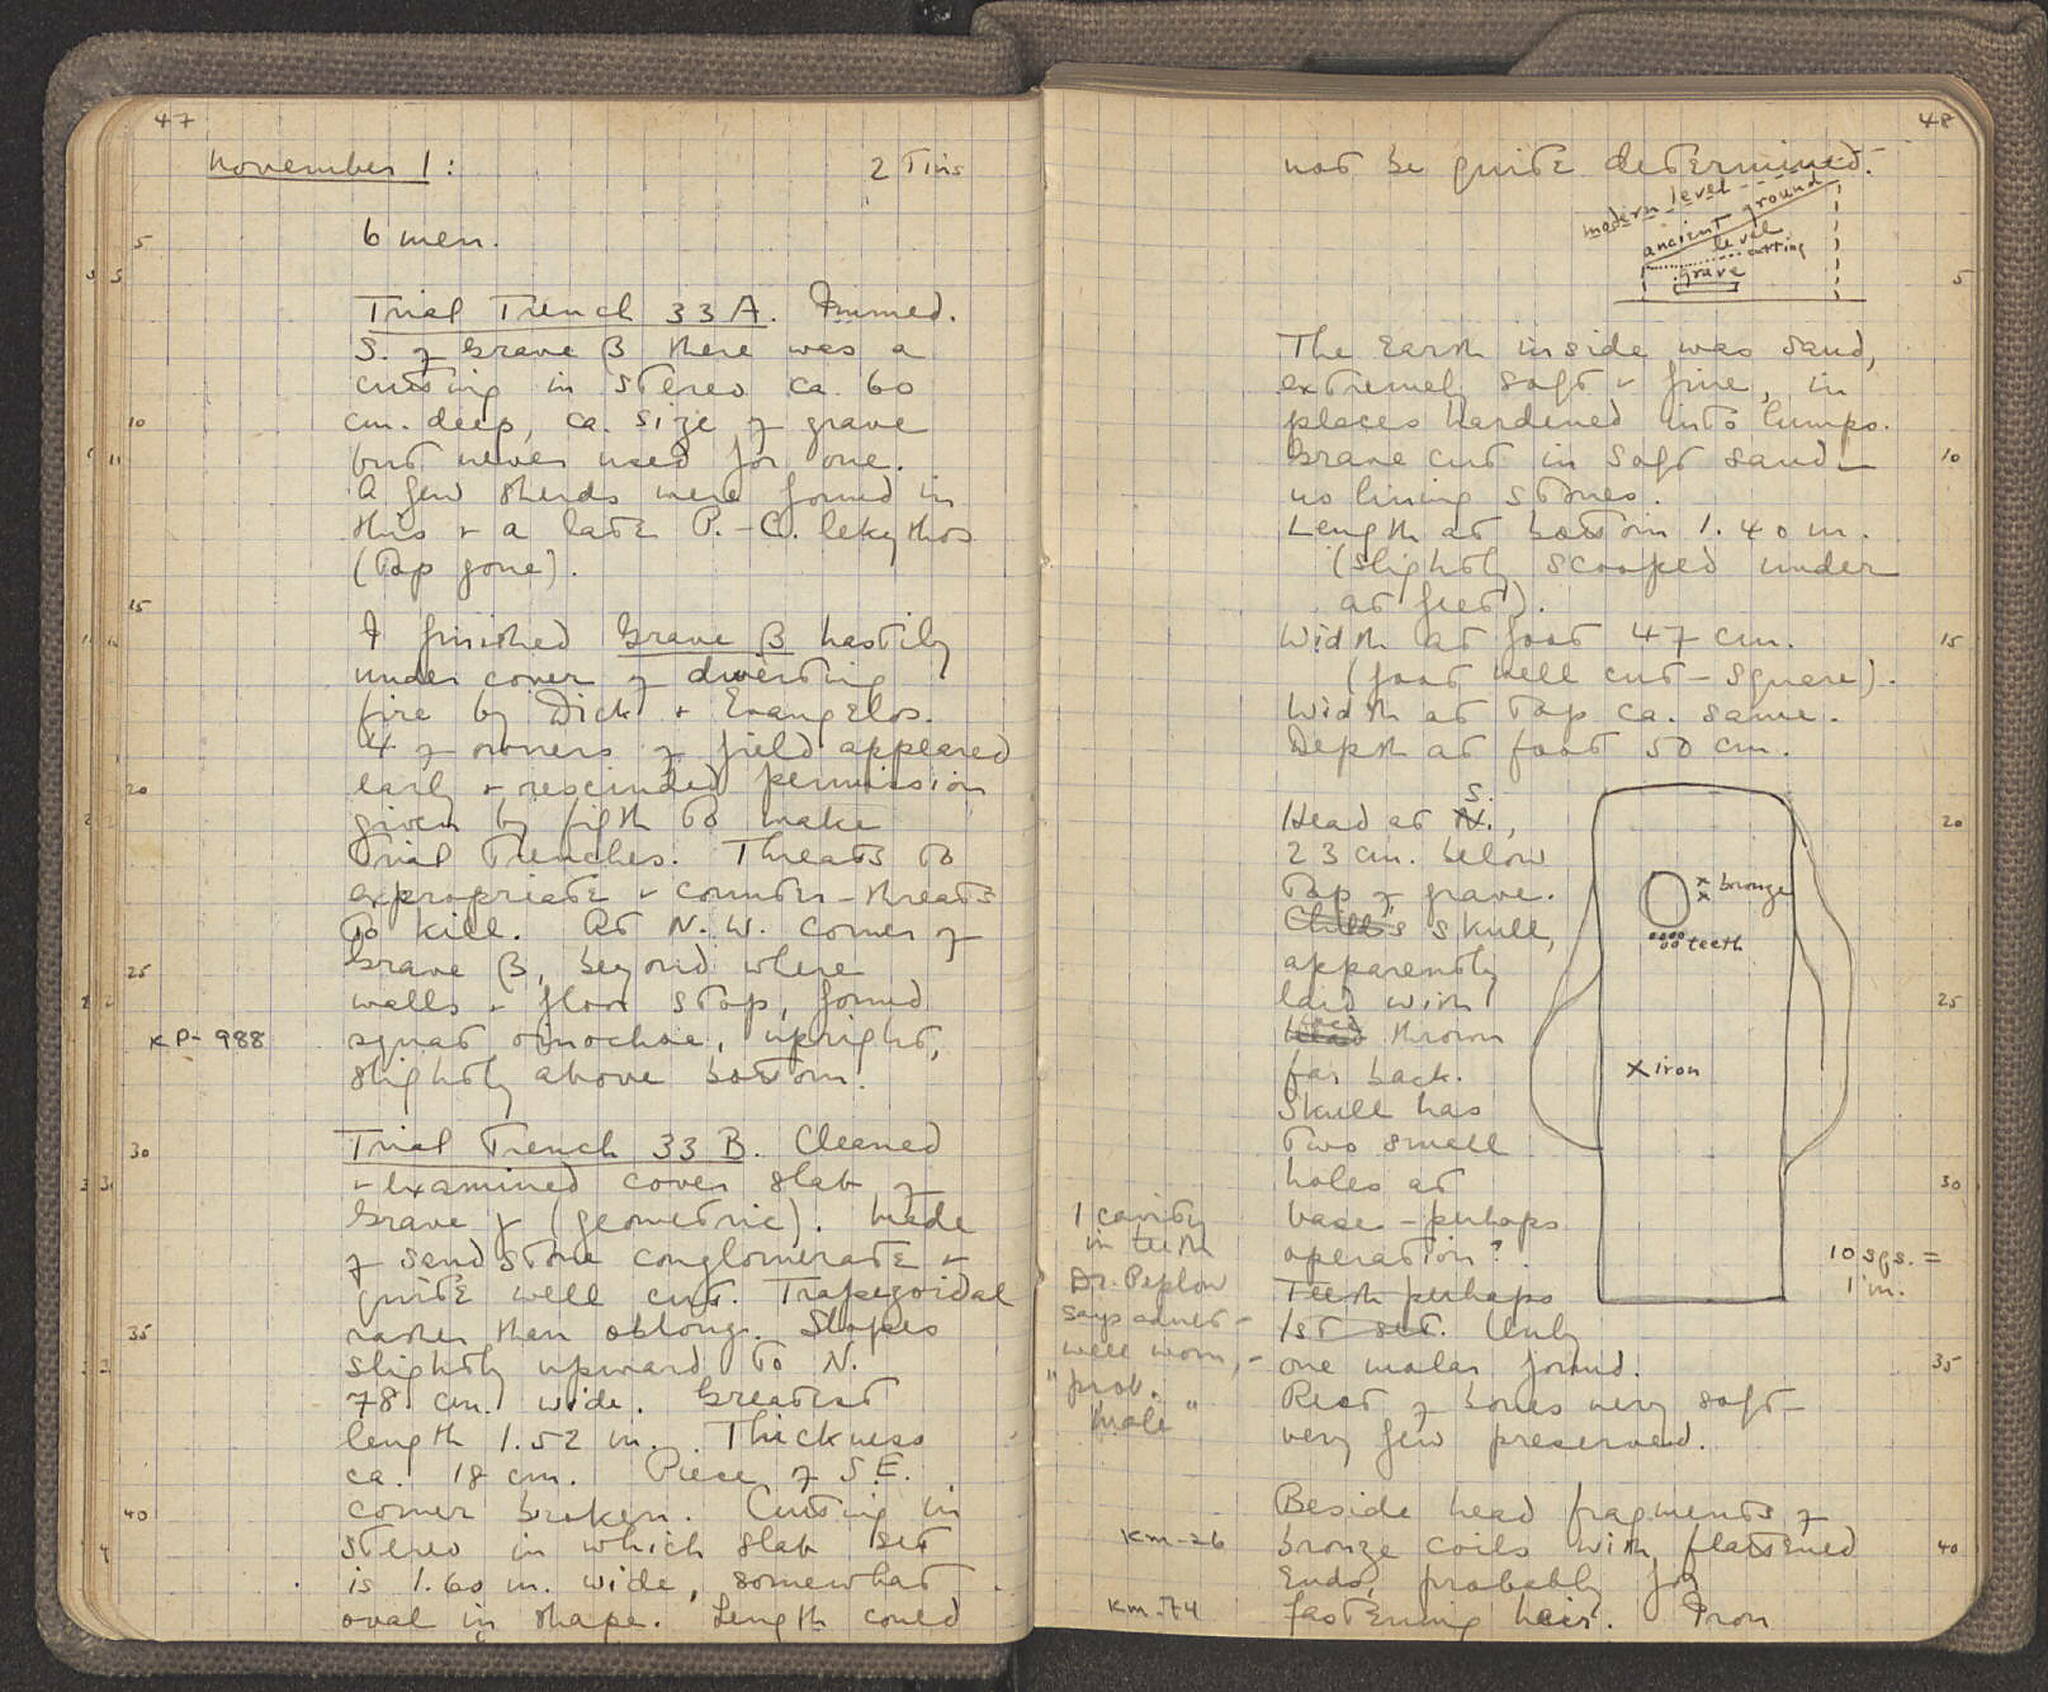 47
November 1:
2 Tins
6 men.
Trial Trench 33 A. Immed.
S. of Grave β there was a
cutting in stereo ca. 60
cm. deep, ca. size of grave
but never used for one.
A few sherds were found in
this + a late P.-C. lekythos
(top gone).
I finished Grave β hastily
under cover of diverting
fire by Dick + Evangelos.
4 of owners of field appeared
early + rescinded permission
given by fifth to make
trial trenches. Threats to
expropriate + counter-threats
to kill. At N.W. corner of
Grave β, beyond where
walls + floor stop, found
KP-988
squat oinochoe, upright,
slightly above bottom.
Trial Trench 33 B. Cleaned
+ examined cover slab of
Grave γ (geometric). Made
of sandstone conglomerate +
quite well cut. Trapezoidal
rather than oblong. Slopes
slightly upward to N.
78 cm. wide. Greatest
length 1.52 m. Thickness
ca. 18 cm. Piece of S.E.
corner broken. Cutting in
stereo in which slab set
is 1.60 m. wide, somewhat
oval in shape. Length could
5
10
15
20
25
30
35
40
48
not be quite determined.
modern level
ancient ground
level
cutting
grave
The earth inside was sand,
extremely soft + fine, in
places hardened into lumps.
Grave cut in soft sand –
no lining stones.
Length at bottom 1.40 m.
(slightly scooped under
at feet).
Width at foot 47 cm.
(foot well cut – square).
Width at top ca. same.
Depth at foot 50 cm.
S.
Head at N.,
23 cm. below
top of grave.
Child's skull,
apparently
laid with
face
head thrown
far back.
Skull has
two small
holes at
base – perhaps
operation?
Teeth perhaps
1st set. Only
one molar found.
Rest of bones very soft –
very few preserved.
1 cavity
in teeth
Dr. Peplow
says adult –
well worn, –
"prob.
male"
x bronze
x
teeth
x iron
10 sqs. =
1 m.
Beside head fragments of
KM-26
bronze coils with flattened
ends, probably for
KM-74
fastening hair. Iron
5
10
15
20
25
30
35
40